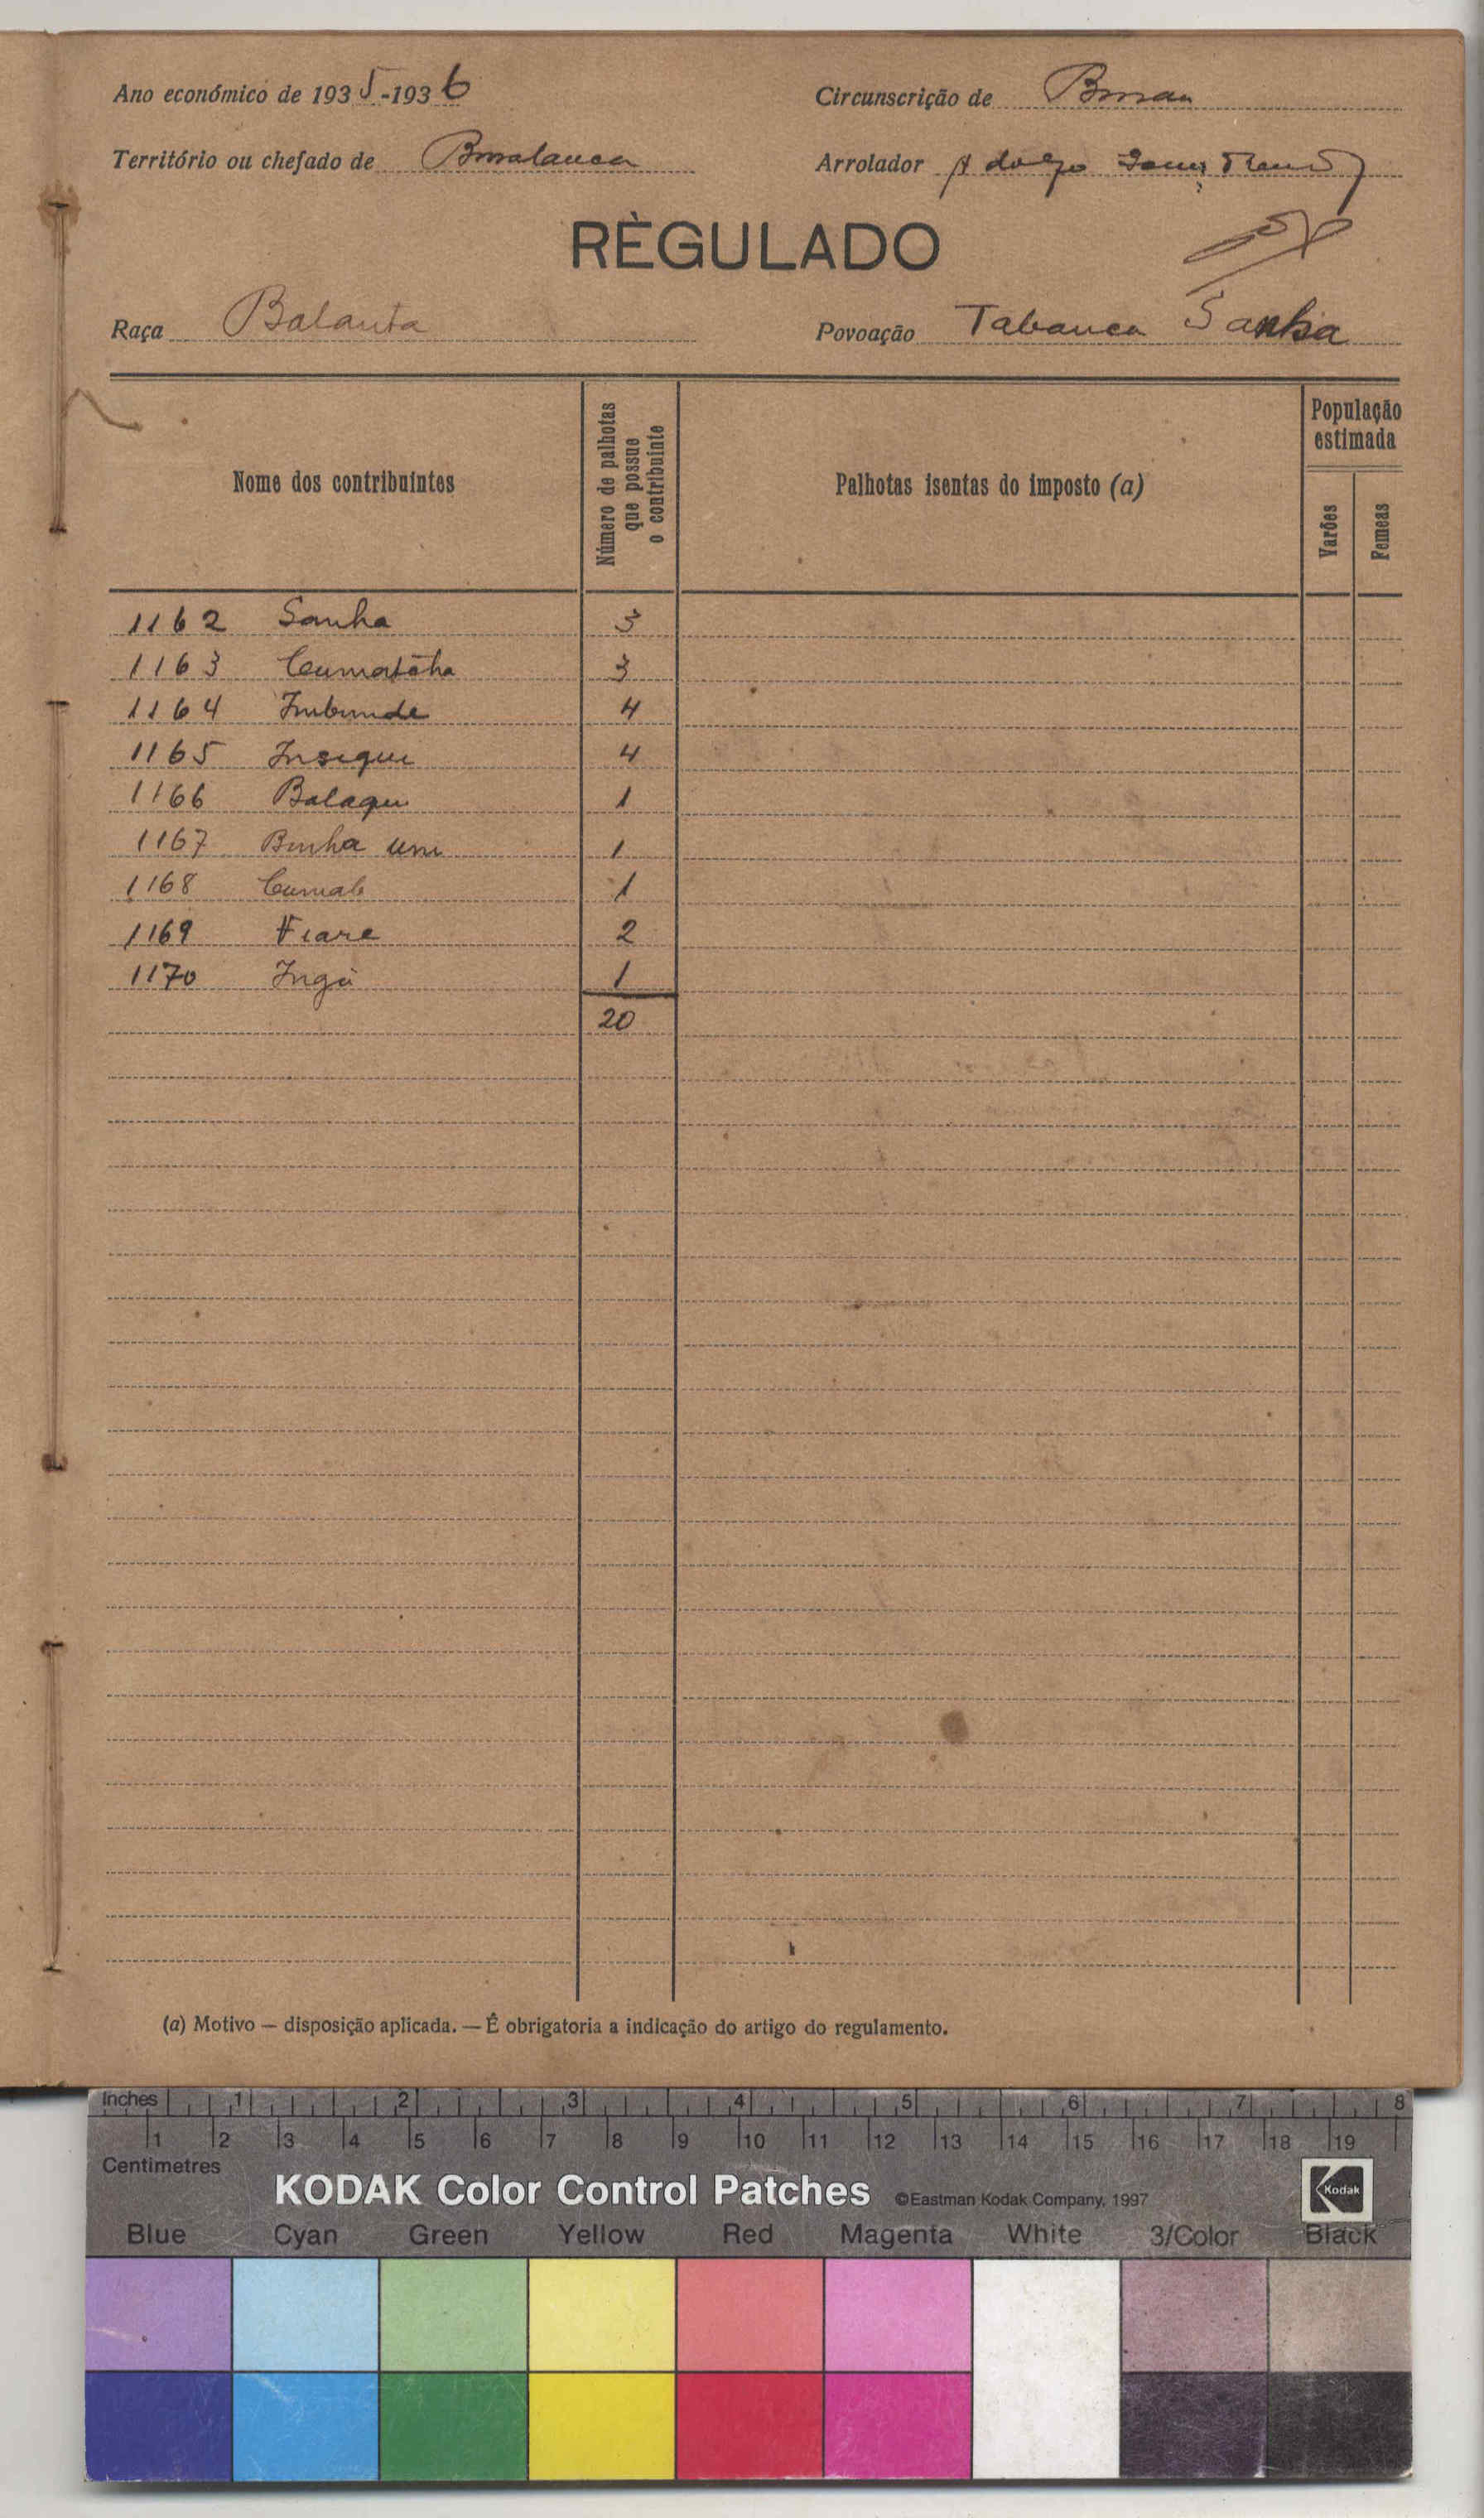 Ano económico de 1935-1936
Circunscrição de
Território ou chefado de
Arrolador Adolfo
RÈGULADO
Raça Balanta
Povoação Tabanca Sanha
Nome dos contribuintes
Número de palhotas que possue o contribuinte
Palhotas isentas do imposto (a)
População estimada
Varões
Femeas
1162 Sanha 3
1163 3
1164 Imbunde 4
1165 Insiqui 4
1166 Balaqui 1
1167 Binha 1
1168 1
1169 Fiare 2
1170 Ingà 1
20
(a) Motivo — disposição aplicada. — É obrigatoria a indicação do artigo do regulamento.
Inches 1 2 3 4 5 6 7 8
1 2 3 4 5 6 7 8 9 10 11 12 13 14 15 16 17 18 19
Centimetres
KODAK Color Control Patches ©Eastman Kodak Company, 1997 Kodak
Blue Cyan Green Yellow Red Magenta White 3/Color Black